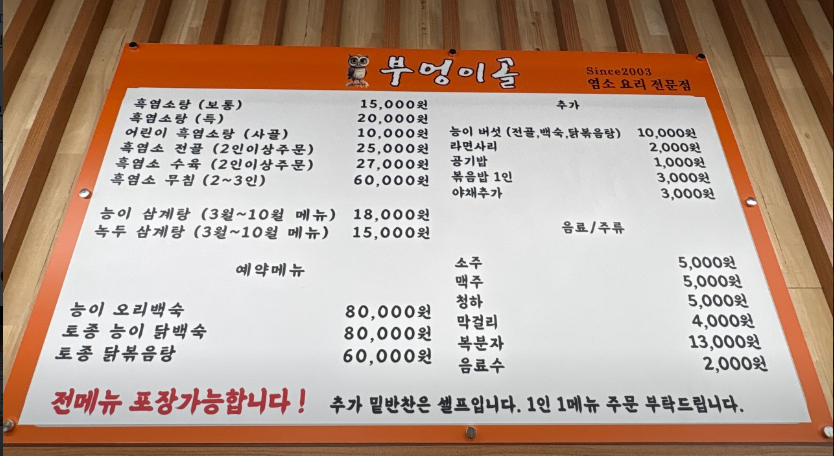 부엉이골
Since2003
염소 요리 전문점
흑염소탕 (보통) 15,000원
흑염소탕 (특) 20,000원
어린이 흑염소탕 (사골) 10,000원
흑염소 전골 (2인이상주문) 25,000원
흑염소 수육 (2인이상주문) 27,000원
흑염소 무침 (2~3인) 60,000원
능이 삼계탕 (3월~10월 메뉴) 18,000원
녹두 삼계탕 (3월~10월 메뉴) 15,000원
예약메뉴
능이 오리백숙 80,000원
토종 능이 닭백숙 80,000원
토종 닭볶음탕 60,000원
추가
능이 버섯 (전골,백숙,닭볶음탕) 10,000원
라면사리 2,000원
공기밥 1,000원
볶음밥 1인 3,000원
야채추가 3,000원
음료/주류
소주 5,000원
맥주 5,000원
청하 5,000원
막걸리 4,000원
복분자 13,000원
음료수 2,000원
전메뉴 포장가능합니다!
추가 밑반찬은 셀프입니다. 1인 1메뉴 주문 부탁드립니다.